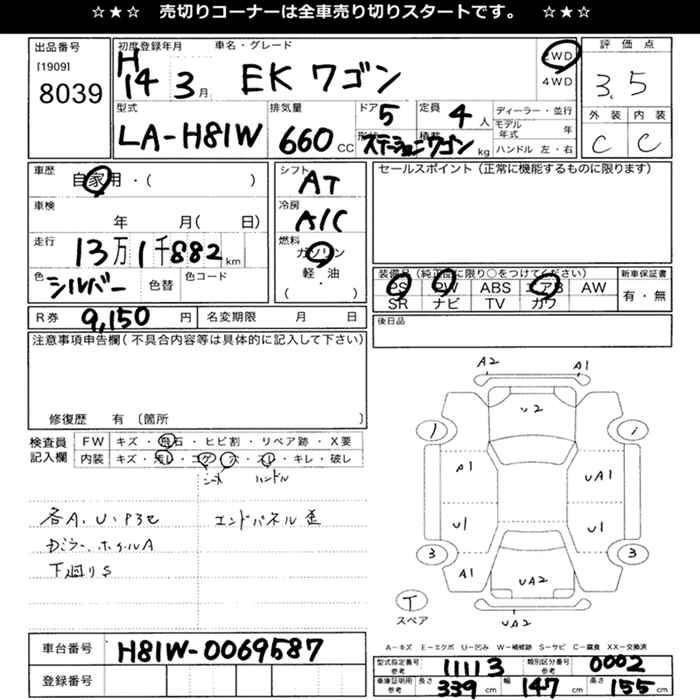 ☆★☆ 売切りコーナーは全車売り切りスタートです。 ☆★☆
出品番号
[1909]
8039
初度登録年月
H
14 3月
車名・グレード
EK ワゴン
2WD
4WD
評価点
3.5
外装 内装
C C
型式
LA-H81W
排気量
660 CC
ドア 5
形状 ステーションワゴン
定員 4 人
積載 kg
ディーラー・並行
モデル年式 年
ハンドル 左・右
車歴
自家用・( )
車検
年 月( 日)
走行
13万1千882 km
色 シルバー
色替
色コード
シフト
AT
冷房
A/C
燃料
ガソリン
軽・油
( )
セールスポイント(正常に機能するものに限ります)
装備品(純正品に限り○をつけてください)
PS PW ABS エアB AW
SR ナビ TV カワ
新車保証書
有・無
R券 9,150 円
名変期限 月 日
後日品
注意事項申告欄(不具合内容等は具体的に記入して下さい)
修復歴 有 〔箇所
検査員
記入欄
FW キズ・飛石・ヒビ割・リペア跡・X要
内装 キズ・汚レ・コゲ・穴・スレ・キレ・破レ
シート ハンドル
各A.U.Pヨセ
エンドパネル歪
Dミラー、ホイルA
下廻りS
A2 A1
U2
) i
A1 UA1
U1 U1
3 3
A1 UA2
T
スペア
UA2
A-キズ E-エクボ U-凹み W-補修跡 S-サビ C-腐食 XX-交換済
車台番号 H81W-0069587
登録番号
型式指定番号 参考 11113
類別区分番号 参考 0002
車庫証明用 参考 長さ 339 cm 幅 147 cm 高さ 155 cm